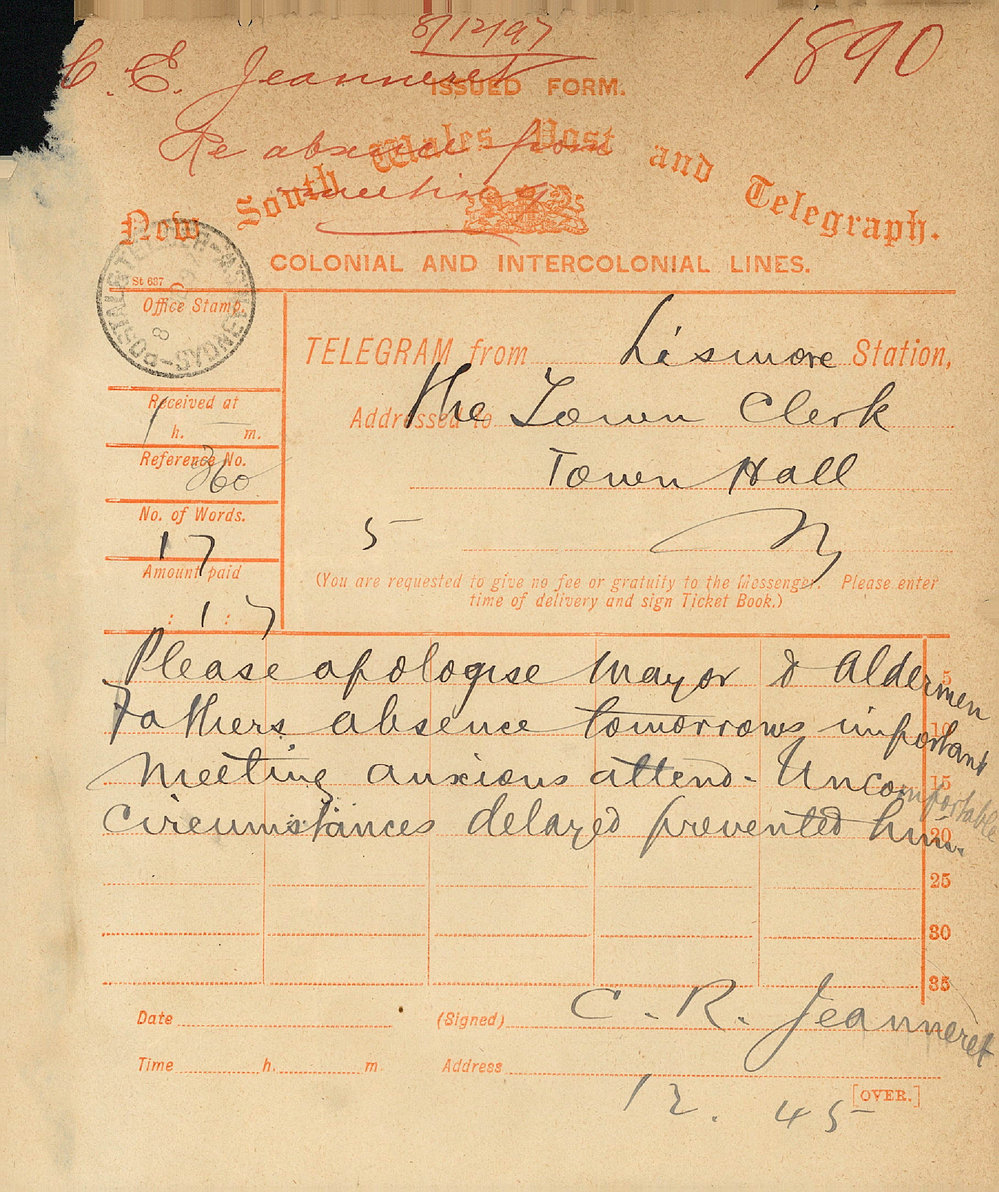 8/12/97
1890
C. E. Jeanneret
ISSUED FORM.
Re absence from
meeting
New South Wales Post and Telegraph.
COLONIAL AND INTERCOLONIAL LINES.
St 637
Office Stamp.
TELEGRAM from Lismore Station,
Addressed to The Town Clerk
Town Hall
Received at
1 h. m.
Reference No.
360
No. of Words.
17
5
Amount paid
: 1 : 7
(You are requested to give no fee or gratuity to the Messenger. Please enter
time of delivery and sign Ticket Book.)
Please apologise Mayor & Aldermen 5
Fathers absence tomorrows important 10
Meeting anxious attend - Uncomfortable 15
circumstances delayed prevented him. 20
25
30
35
Date (Signed) C. R. Jeanneret
Time h. m. Address
12. 45
[OVER.]